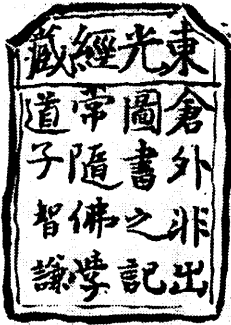 東光經藏
倉外非出
圖書之記
常隨佛學
道子智謙